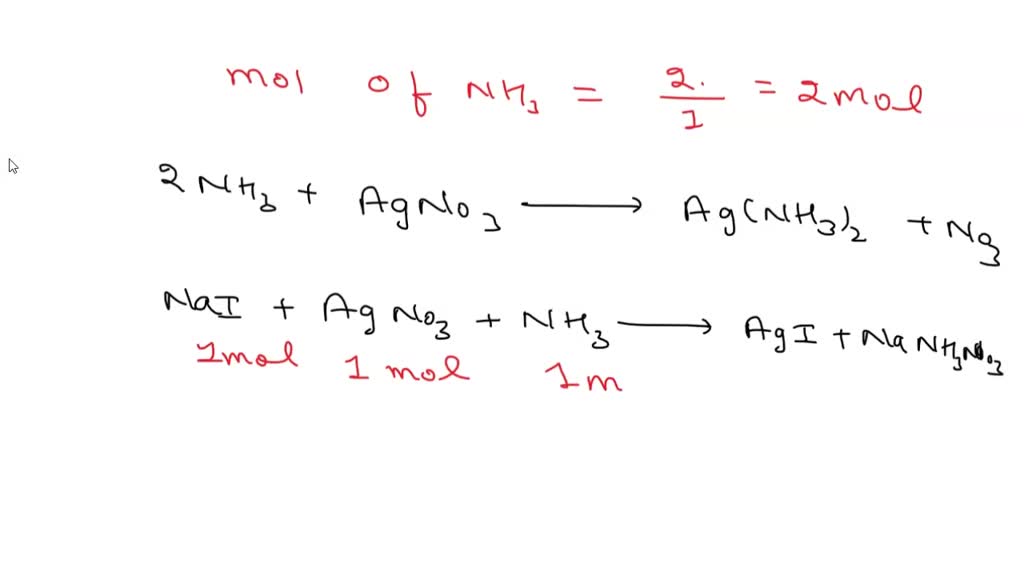 mol of NH3 = 2./1 = 2mol
2 NH3 + AgNO3 → Ag(NH3)2 + NO3
NaI + AgNO3 + NH3 → AgI + NaNH3NO3
1mol 1 mol 1m